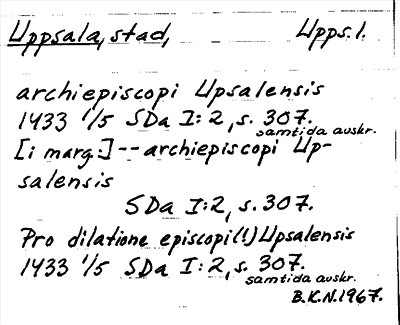 Uppsala, stad, Upps. l.
archiepiscopi Upsalensis
1433 1/5 SDa I:2, s. 307.
samtida avskr.
[i marg.] -- archiepiscopi Up-
salensis
SDa I:2, s. 307.
Pro dilatione episcopi(!) Upsalensis
1433 1/5 SDa I:2, s. 307.
samtida avskr.
B.K.N. 1967.